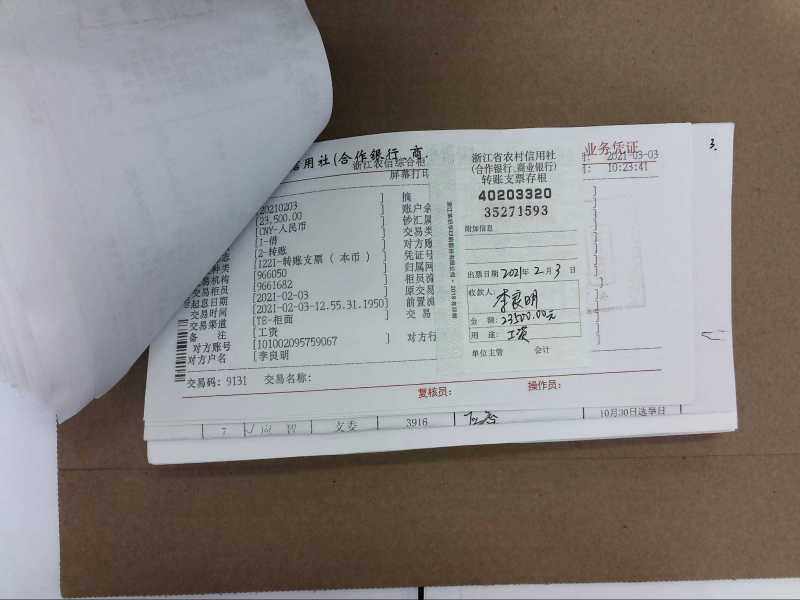 信用社(合作银行、商
浙江农信综合柜
屏幕打印
业务凭证
2021-03-03
10:23:41
3.
[20210203 ] 摘
[23,500.00 ] 账户余
[CNY-人民币 ] 钞汇属
[1-借 ] 交易类
[2-转账 ] 对方账
种类 [122I-转账支票（本币） ] 凭证号
交易机构 [966050 ] 归属网
交易柜员 [9661682 ] 柜员流
起息日期 [2021-02-03 ] 原交易
交易时间 [2021-02-03-12.55.31.1950] 前置流
交易渠道 [TE-柜面 ] 交易
备 注 [工资
对方账号 [101002095759067 ] 对方行
对方户名 [李良明
交易码: 9131 交易名称:
复核员: 操作员:
浙江省农村信用社
(合作银行、商业银行)
转账支票存根
40203320
35271593
附加信息
出票日期 2021年 2月 3日
收款人: 李良明
金 额: 23500.00元
用 途: 工资
单位主管 会计
7 文委 3916 10月30日选举日